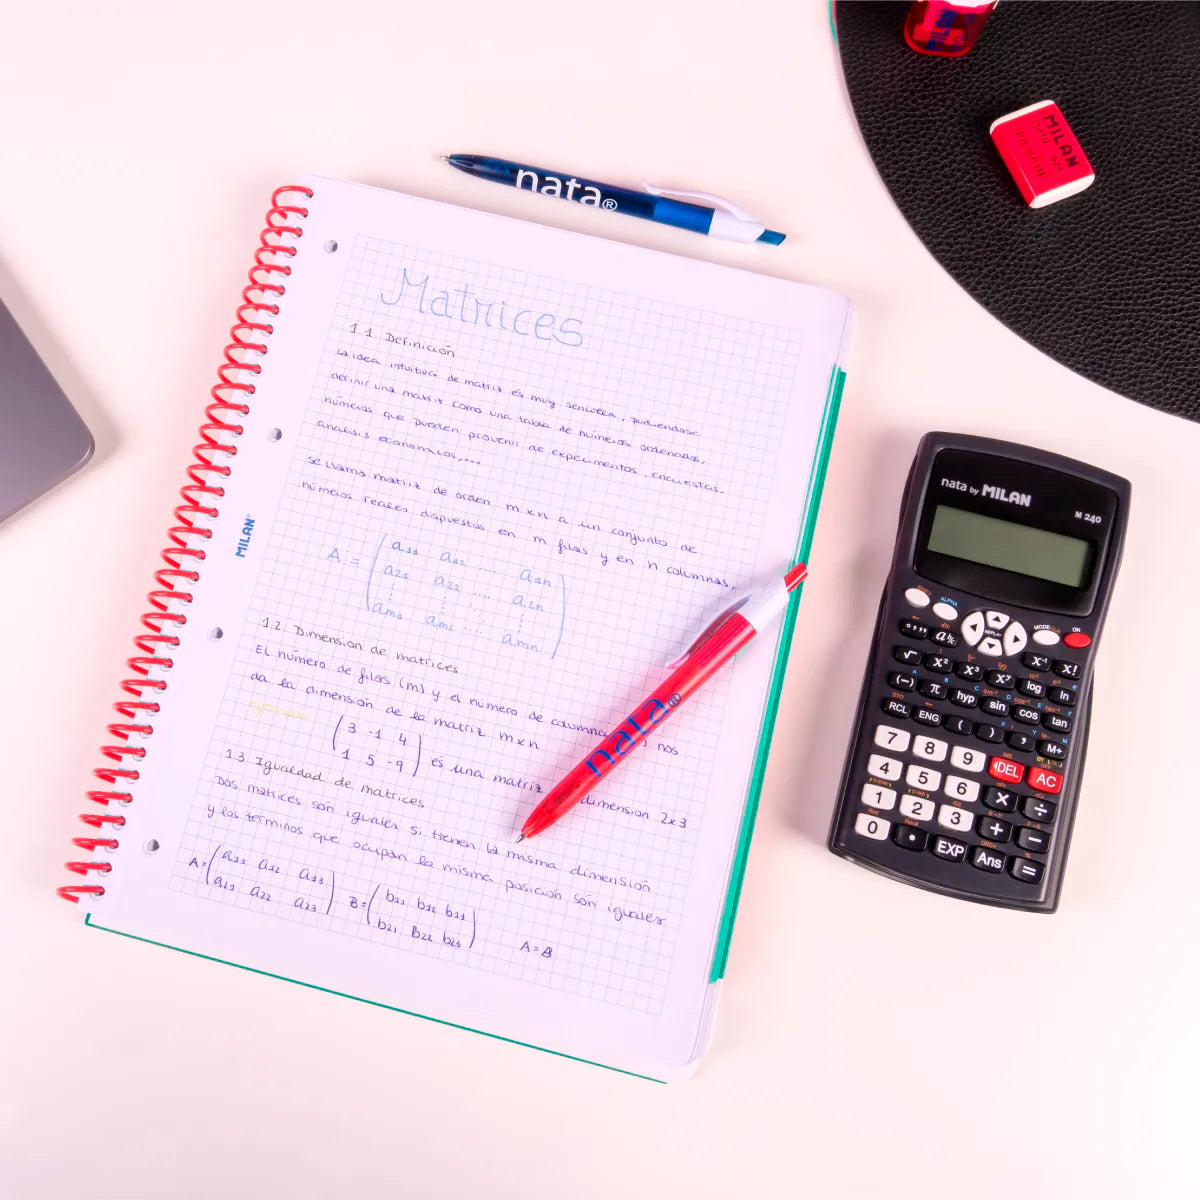 MILAN
MILAN
nata 624
nata®
Matrices
1.1. Definición
La idea intuitiva de matriz es muy sencilla, pudiéndose
definir una matriz como una tabla de números ordenados,
números que pueden provenir de experimentos, encuestas,
análisis económicos,...
Se llama matriz de orden m x n a un conjunto de
números reales dispuestos en m filas y en n columnas.
A = (a11 a12 .... a1n
a21 a22 .... a2n
am1 am2 .... amn)
MILAN®
1.2. Dimension de matrices
El número de filas (m) y el número de columna nos
da la dimensión de la matriz m x n
ejemplo
(3 -1 4
1 5 -9) es una matriz dimension 2x3
1.3. Igualdad de matrices
Dos matrices son iguales si tienen la misma dimensión
y los términos que ocupan la misma posición son iguales
A=(a11 a12 a13 B=(b11 b12 b13
a21 a22 a23) b21 B22 b23) A=B
nata®
nata by MILAN
M 240
ALPHA MODE ON
REPLAY
° , ,, a b/c x⁻¹ x!
√ x² x³ log ln
(−) π hyp sin cos tan
RCL ENG ( ) , M+
7 8 9 DEL AC
4 5 6 × ÷
1 2 3 + −
0 • EXP Ans =